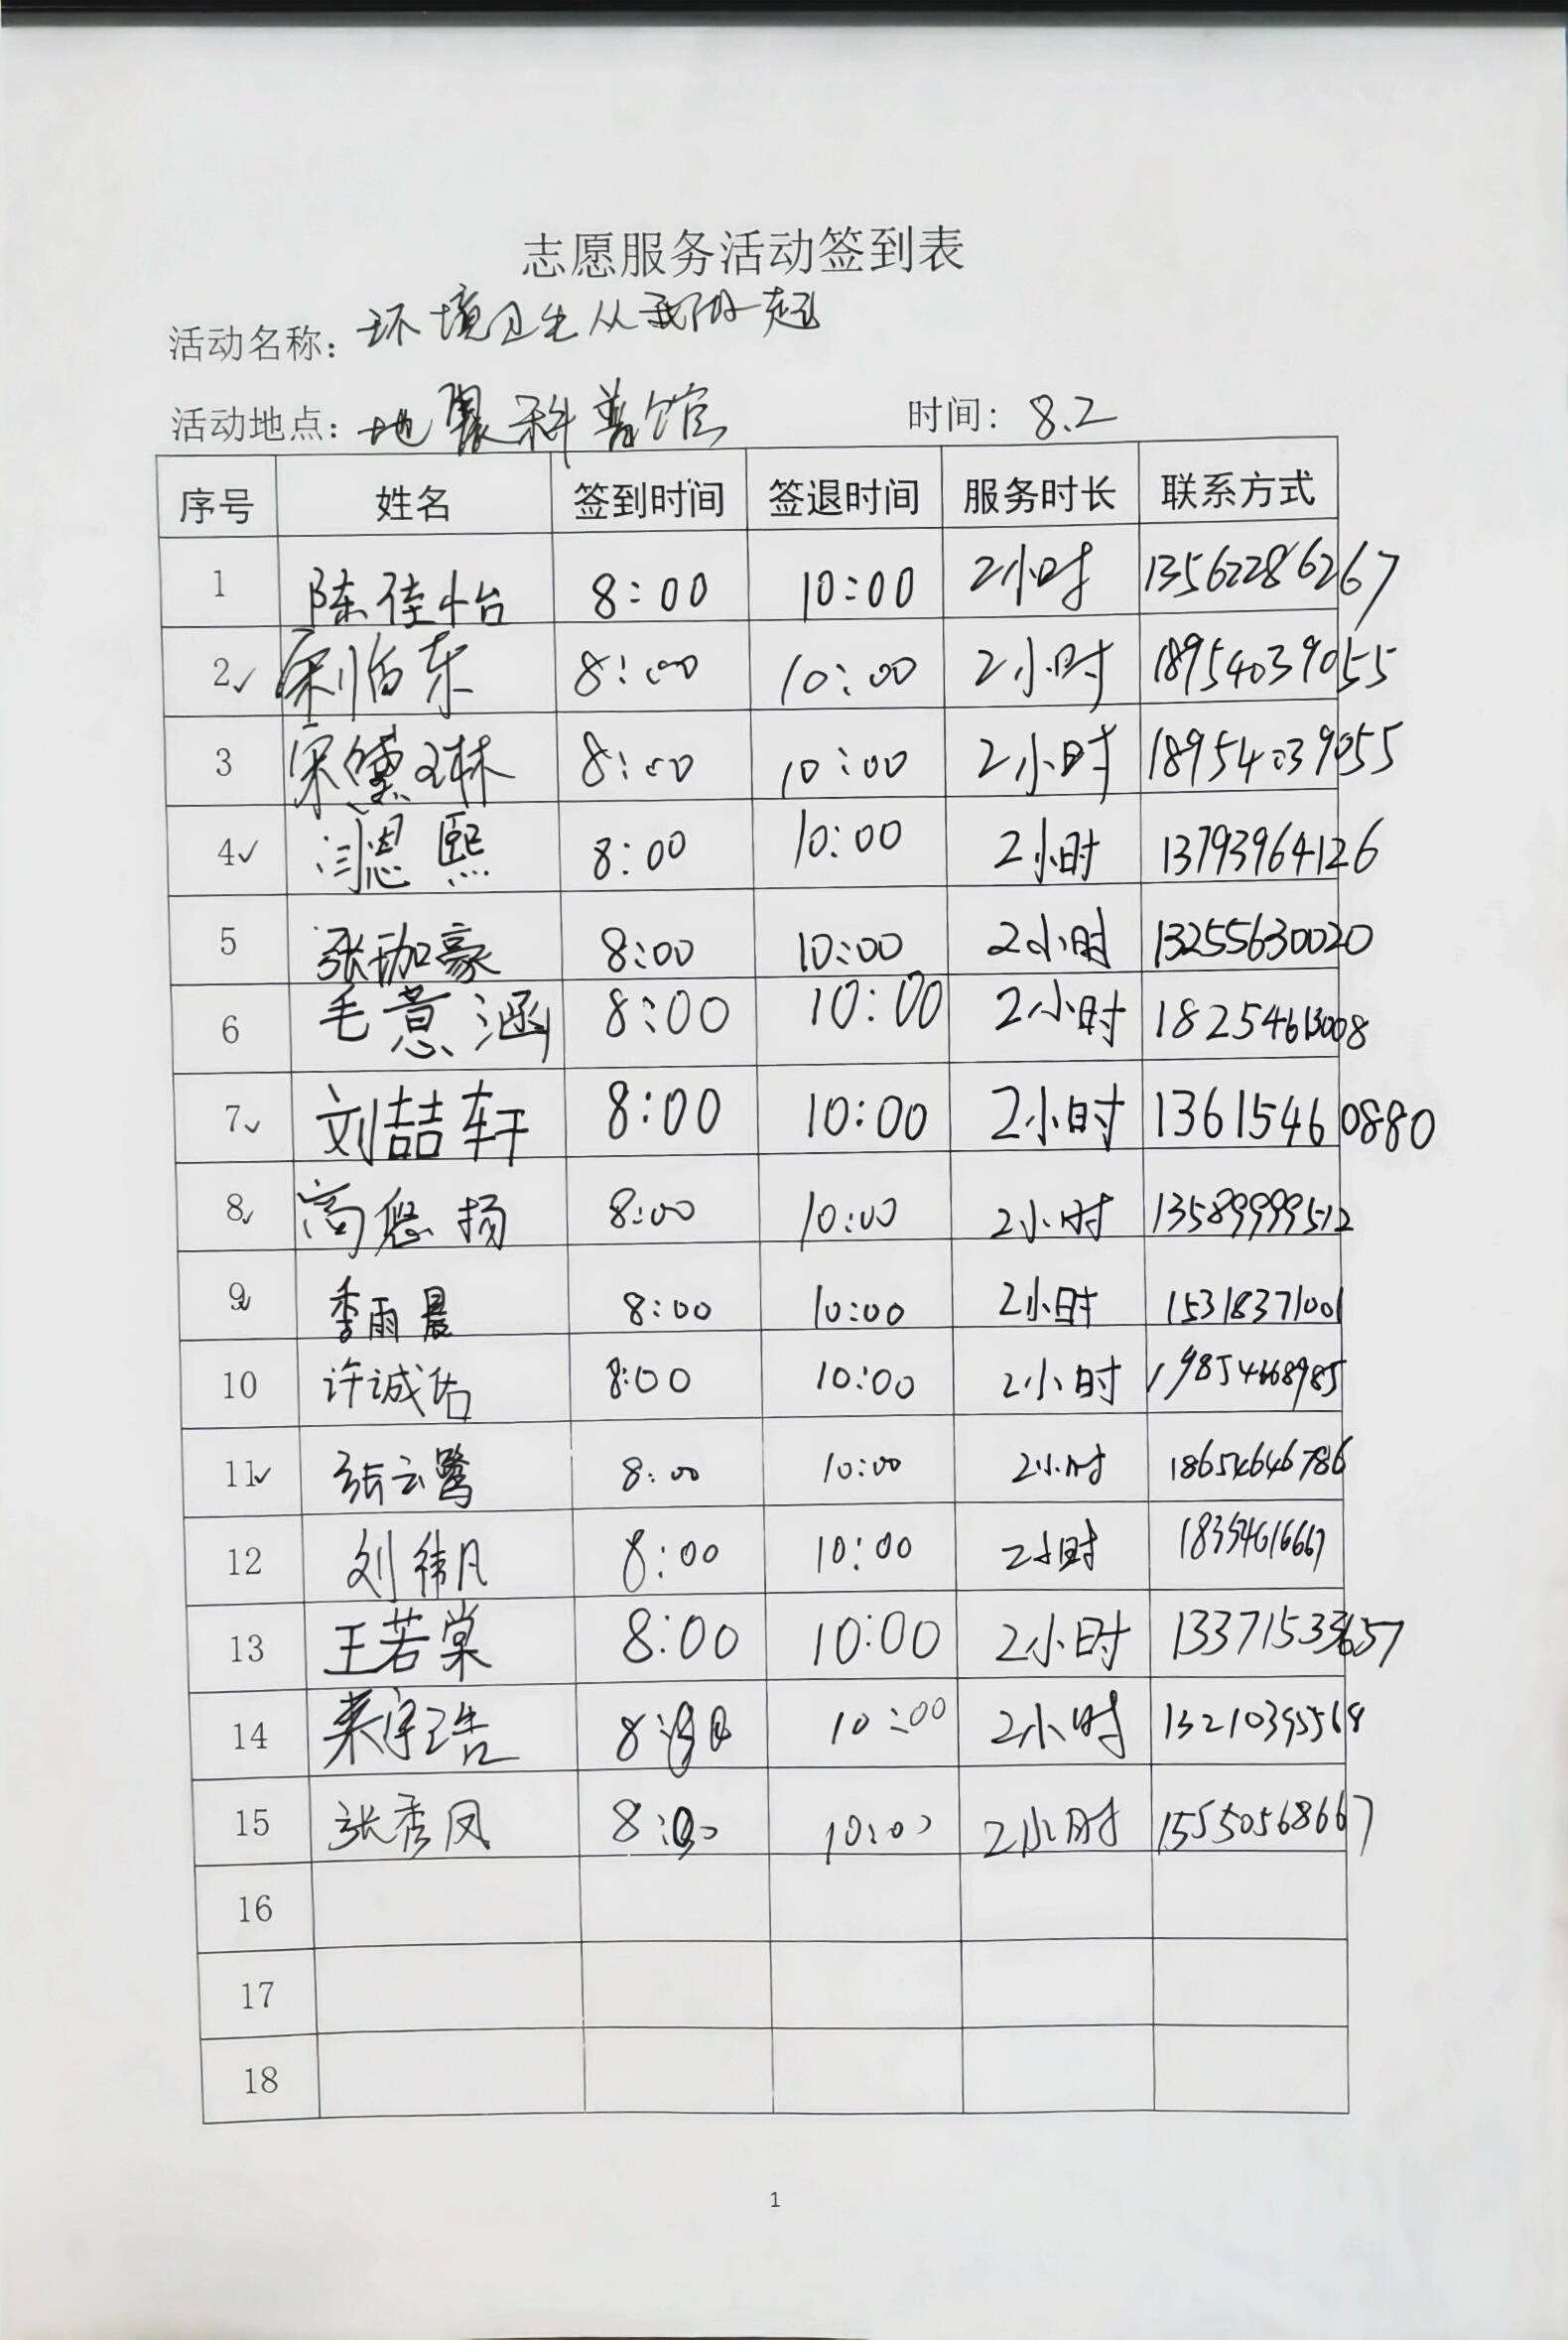 志愿服务活动签到表
活动名称: 环境卫生从我做起
活动地点: 地震科普馆 时间: 8.2
序号 姓名 签到时间 签退时间 服务时长 联系方式
1 陈佳怡 8:00 10:00 2小时 13562286267
2✓ 东 8:00 10:00 2小时 18954039055
3 宋黛琳 8:00 10:00 2小时 18954039055
4✓ 闫恩熙 8:00 10:00 2小时 13793964126
5 张珈豪 8:00 10:00 2小时 13255630020
6 毛薏涵 8:00 10:00 2小时 18254613008
7✓ 刘喆轩 8:00 10:00 2小时 13615460880
8✓ 高悠扬 8:00 10:00 2小时 13589999512
9✓ 李雨晨 8:00 10:00 2小时 15318371001
10 许诚佑 8:00 10:00 2小时 19854668985
11✓ 张云鹭 8:00 10:00 2小时 18654646786
12 刘祎凡 8:00 10:00 2小时 18354616667
13 王若棠 8:00 10:00 2小时 13371533657
14 10:00 2小时 13210395568
15 张秀凤 8:00 10:00 2小时 15550568667
16
17
18
1